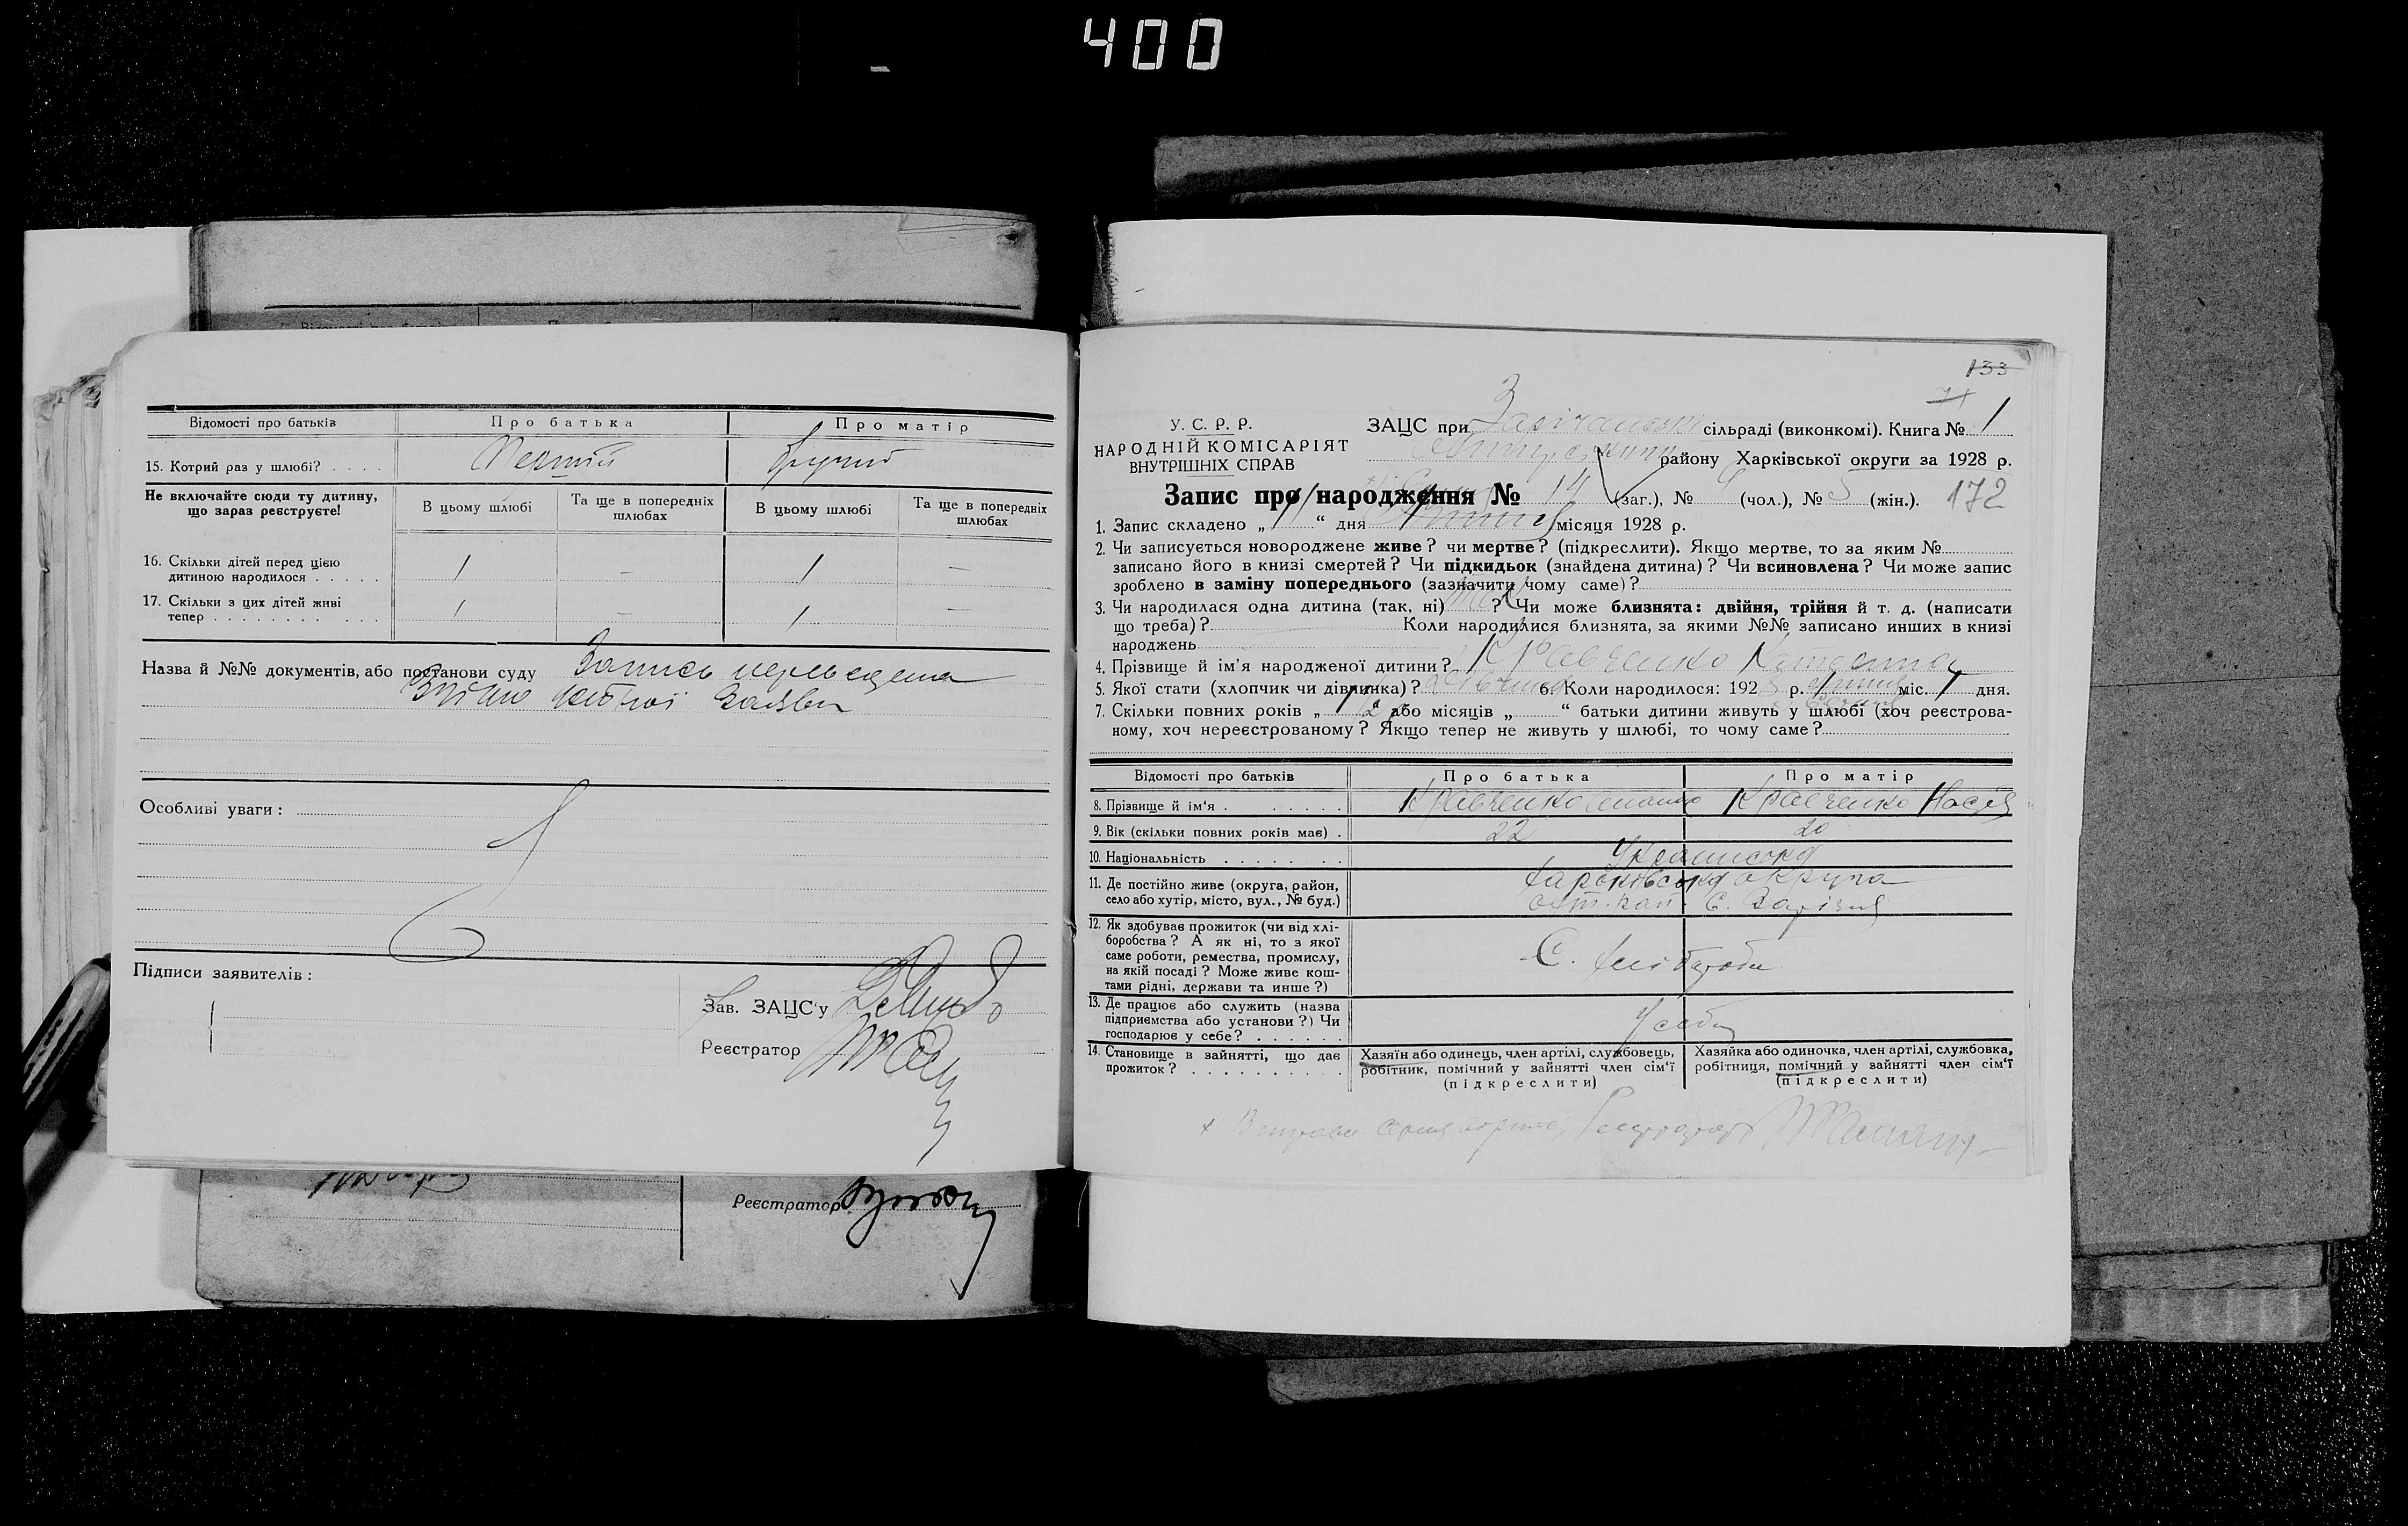 400
Відомості про батьків
Про батька
Про матір
15. Котрий раз у шлюбі? . . . .
Перший
Другий
Не включайте сюди ту дитину,
що зараз реєструєте!
В цьому шлюбі
Та ще в попередніх
шлюбах
В цьому шлюбі
Та ще в попередніх
шлюбах
16. Скільки дітей перед цією
дитиною народилося . . . . .
1
—
1
—
17. Скільки з цих дітей живі
тепер . . . . . . . . . . .
1
—
1
—
Назва й №№ документів, або постанови суду Запись
заяви
Особливі уваги:
Підписи заявителів:
Зав. ЗАЦС'у
Реєстратор
Реєстратор
133
71
У. С. Р. Р.
НАРОДНІЙ КОМІСАРІЯТ
ВНУТРІШНІХ СПРАВ
ЗАЦС при сільраді (виконкомі). Книга № 1
району Харківської округи за 1928 р.
Запис про народження № 14 (заг.), № 9 (чол.), № 5 (жін.). 172
1. Запис складено „ 11 “ дня місяця 1928 р.
2. Чи записується новороджене живе? чи мертве? (підкреслити). Якщо мертве, то за яким №
записано його в книзі смертей? Чи підкидьок (знайдена дитина)? Чи всиновлена? Чи може запис
зроблено в заміну попереднього (зазначити чому саме)?
3. Чи народилася одна дитина (так, ні) так ? Чи може близнята: двійня, трійня й т. д. (написати
що треба)? Коли народилися близнята, за якими №№ записано инших в книзі
народжень
4. Прізвище й ім'я народженої дитини? Кравченко Катерина
5. Якої стати (хлопчик чи дівчинка)? дівчинка 6. Коли народилося: 1928 р. міс. 1 дня.
7. Скільки повних років „ “ або місяців „ “ батьки дитини живуть у шлюбі (хоч реєстрова-
ному, хоч нереєстрованому? Якщо тепер не живуть у шлюбі, то чому саме?
Відомості про батьків
Про батька
Про матір
8. Прізвище й ім'я . . . . . . . .
Кравченко
Кравченко Надія
9. Вік (скільки повних років має) .
22
20
10. Національність . . . . . . . .
Українська
11. Де постійно живе (округа, район,
село або хутір, місто, вул., № буд.)
Харьківська округа
рай. С.
12. Як здобуває прожиток (чи від хлі-
боробства? А як ні, то з якої
саме роботи, ремества, промислу,
на якій посаді? Може живе кош-
тами рідні, держави та инше?)
С. Хліборобы
13. Де працює або служить (назва
підприємства або установи?) Чи
господарює у себе? . . . . . .
У себя
14. Становище в зайнятті, що дає
прожиток? . . . . . . . . . .
Хазяїн або одинець, член артілі, службовець,
робітник, помічний у зайнятті член сім'ї
(підкреслити)
Хазяйка або одиночка, член артілі, службовка,
робітниця, помічний у зайнятті член сім'ї
(підкреслити)